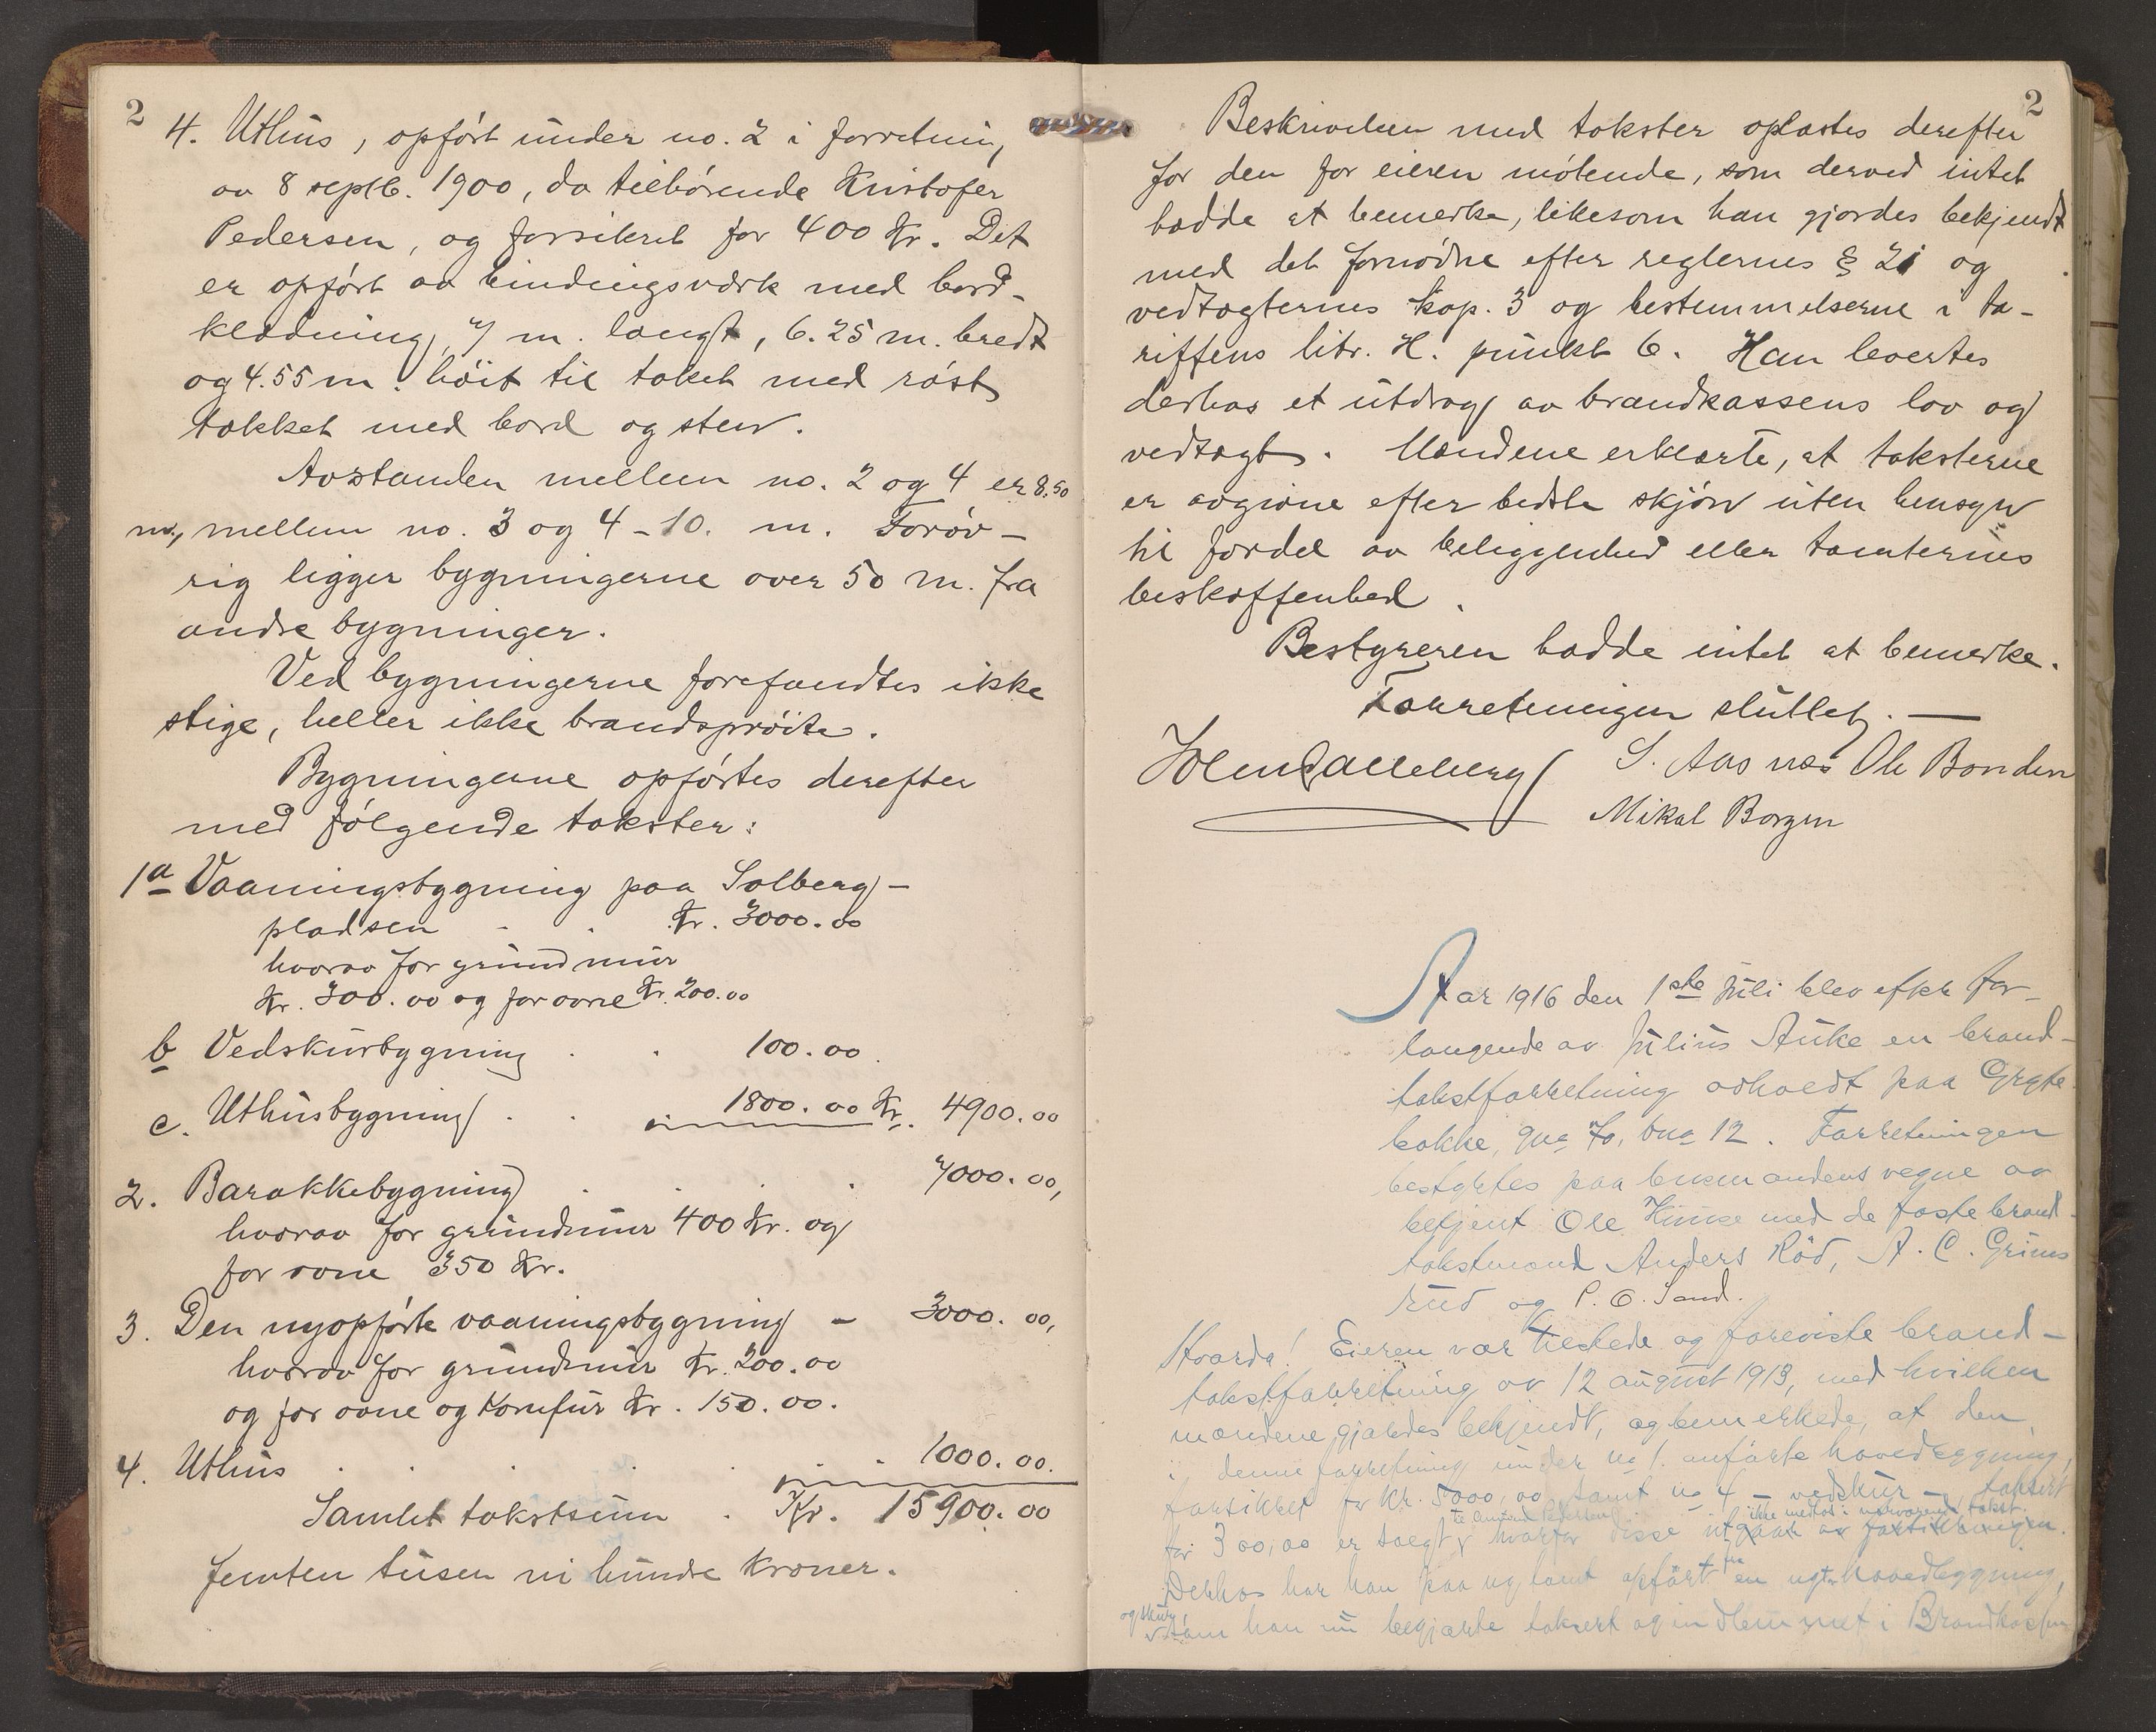 2
4. Uthus, opført under no. 2 i forretning
av 8 septb. 1900, da tilhørende Kristofer
Pedersen, og forsikret for 400 Kr. Det
er opført av bindingsværk med bord-
klædning, 7 m. langt, 6.25 m. bredt
og 4.55 m. høit til taket med røst,
tækket med bord og sten.
Avstanden mellem no. 2 og 4 er 8.50
m, mellem no. 3 og 4 - 10. m. Forøv-
rig ligger bygningerne over 50 m. fra
andre bygninger.
Ved bygningerne forefandtes ikke
stige, heller ikke brandsprøite.
Bygningerne opførtes derefter
med følgende takster:
1a Vaaningsbygning paa Solberg-
pladsen . . Kr. 3000.00
hvorav for grundmur
Kr. 300.00 og for ovne Kr. 200.00
b Vedskurbygning . . 100.00
c. Uthusbygning . . 1800.00 Kr. 4900.00
2. Barakkebygning . . . 7000.00,
hvorav for grundmur 400 Kr. og
for ovne 350 Kr.
3. Den nyopførte vaaningsbygning - 3000.00,
hvorav for grundmur Kr. 200.00
og for ovne og komfur Kr. 150.00.
4. Uthus . . . . . 1000.00.
Samlet takstsum . Kr. 15900.00
femten tusen ni hundre kroner.
2
Beskrivelsen med takster oplæstes derefter
for den for eieren møtende, som derved intet
hadde at bemerke, likesom han gjordes bekjendt
med det fornødne efter reglernes § 21 og
vedtægternes kap. 3 og bestemmelserne i ta-
riffens litr. H. punkt 6. Han levertes
derhos et utdrag av brandkassens lov og
vedtægt. Mændene erklærte, at taksterne
er avgivne efter bedste skjøn uten hensyn
til fordel av beliggenhed eller tomternes
beskaffenhed.
Bestyreren hadde intet at bemerke.
Forretningen sluttet. —
S. Aasnæs Ole Bonden
Mikal Borgen
Aar 1916 den 1ste juli blev efter for-
langende av Julius Auke en brand-
takstforretning avholdt paa Gryte
bakke, gno bno 12. Forretningen
bestyrtes paa lensmandens vegne av
betjent Ole med de faste brand-
takstmænd Anders Rød, A. C. Grims
rud og P. O. Sand.
Hvorda! Eieren var tilstede og foreviste brand-
takstforretning av 12 august 1913, med hvilken
mændene gjordes bekjendt, og bemerkede, at den
i denne forretning under no 1. anførte hovedbygning,
forsikret for Kr. 5000,00 samt no 4 - vedskur - taksert
ikke medtat i nærværende takst.
for 300,00 er solgt hvorfor disse utgaar av forsikringen.
Derhos har han paa ny tomt opført en ny hovedbygning,
og skur
som han nu begjærte taksert og indlemmet i Brandkassen